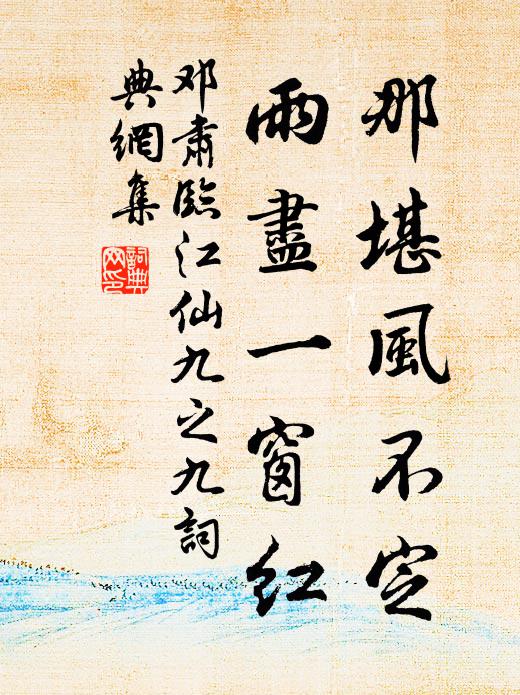 那堪風不定
雨盡一窗紅
邓肅臨江仙九之九詞
典網集
詞典
网印